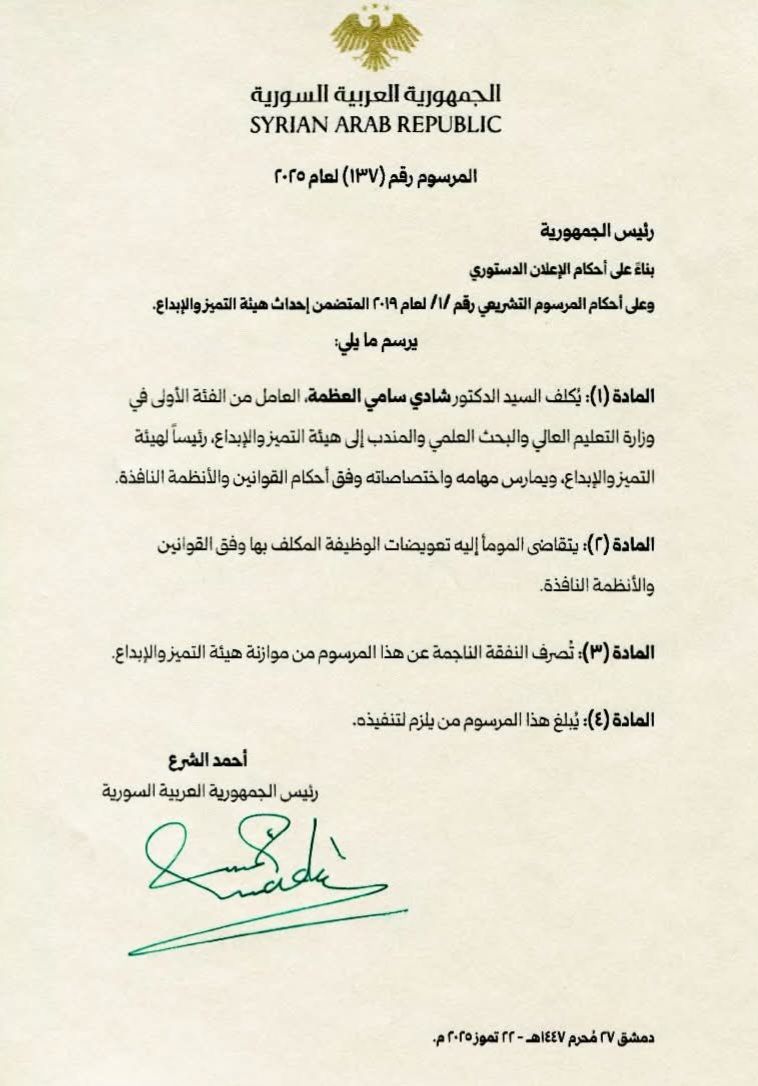 الجمهورية العربية السورية
SYRIAN ARAB REPUBLIC
المرسوم رقم (١٣٧) لعام ٢٠٢٥
رئيس الجمهورية
بناءً على أحكام الإعلان الدستوري
وعلى أحكام المرسوم التشريعي رقم /١/ لعام ٢٠١٩ المتضمن إحداث هيئة التميز والإبداع.
يرسم ما يلي:
المادة (١): يُكلف السيد الدكتور شادي سامي العظمة، العامل من الفئة الأولى في
وزارة التعليم العالي والبحث العلمي والمندب إلى هيئة التميز والإبداع، رئيساً لهيئة
التميز والإبداع، ويمارس مهامه واختصاصاته وفق أحكام القوانين والأنظمة النافذة.
المادة (٢): يتقاضى المومأ إليه تعويضات الوظيفة المكلف بها وفق القوانين
والأنظمة النافذة.
المادة (٣): تُصرف النفقة الناجمة عن هذا المرسوم من موازنة هيئة التميز والإبداع.
المادة (٤): يُبلغ هذا المرسوم من يلزم لتنفيذه.
أحمد الشرع
رئيس الجمهورية العربية السورية
دمشق ٢٧ مُحرم ١٤٤٧هـ - ٢٢ تموز ٢٠٢٥ م.